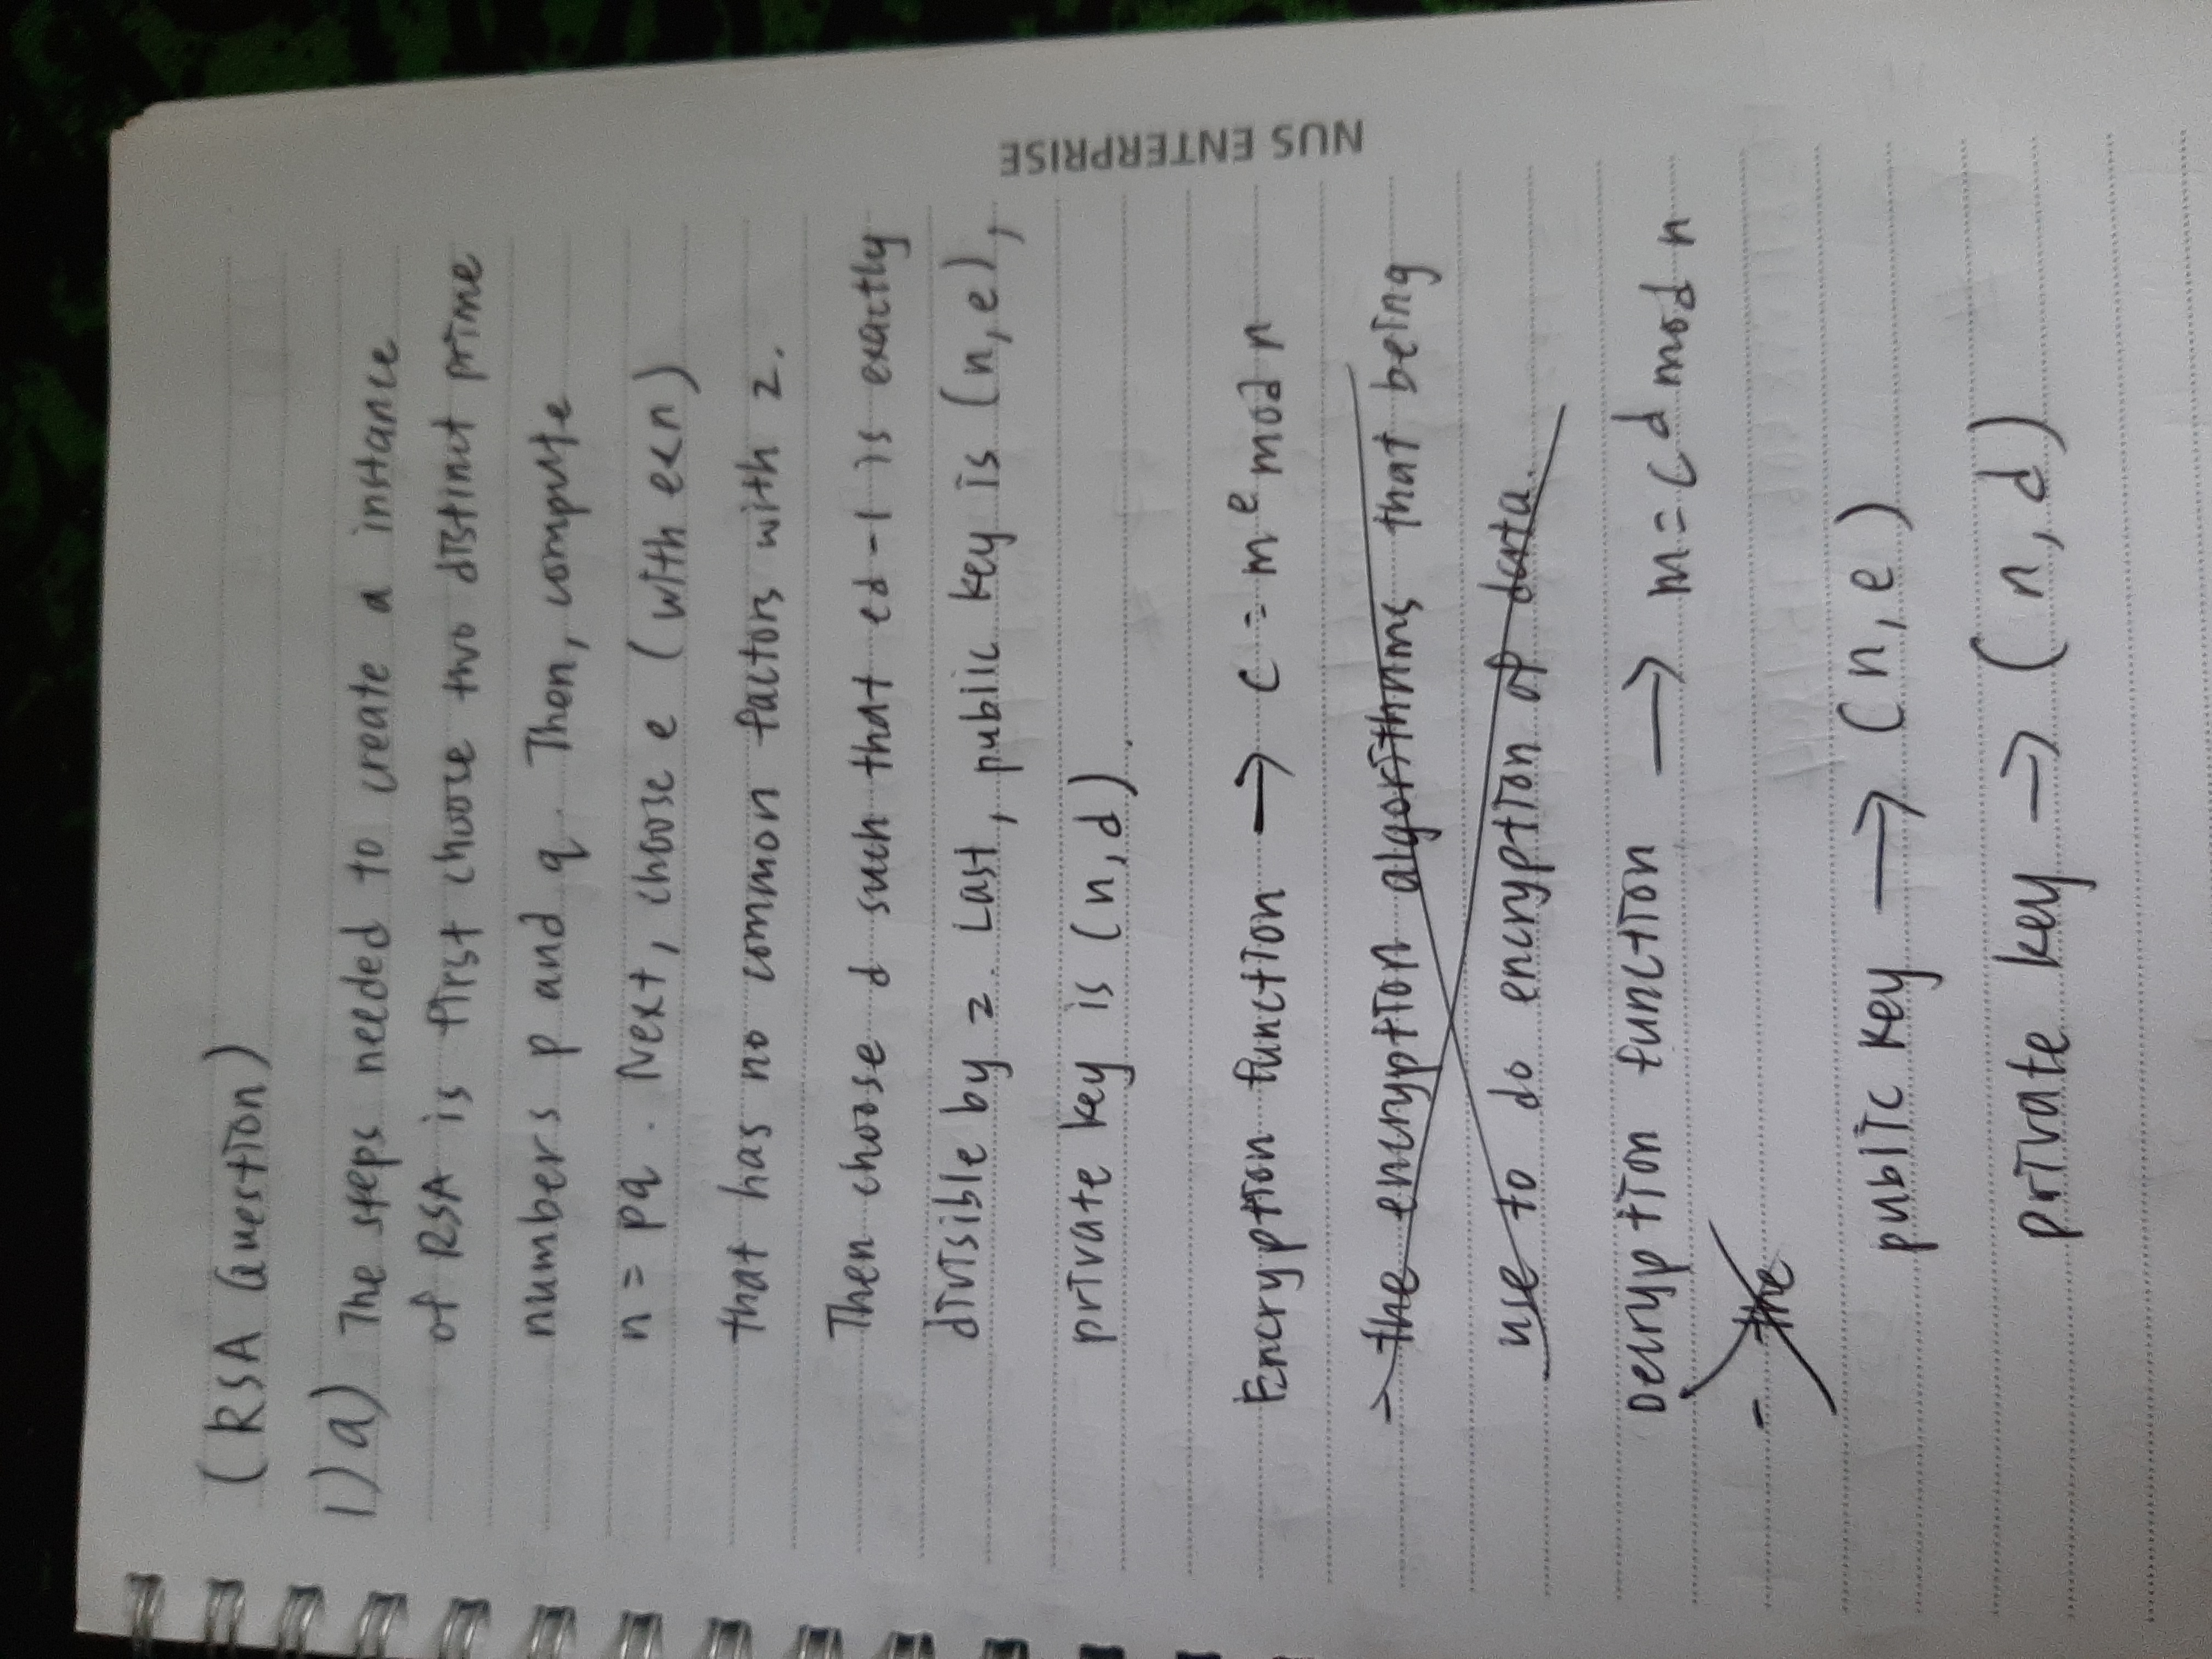 (RSA Question)
1) a) The steps needed to create a instance
of RSA is first choose two distinct prime
numbers p and q. Then, compute
n = pq. Next, choose e (with e<n)
that has no common factors with z.
Then choose d such that ed-1 is exactly
divisible by z. Last, public key is (n,e),
private key is (n,d).
Encryption function → c = m^e mod n
→ the encryption algorithms that being
use to do encryption of data.
Decryption function → m = c^d mod n
- the
public key → (n, e)
private key → (n, d)
NUS ENTERPRISE